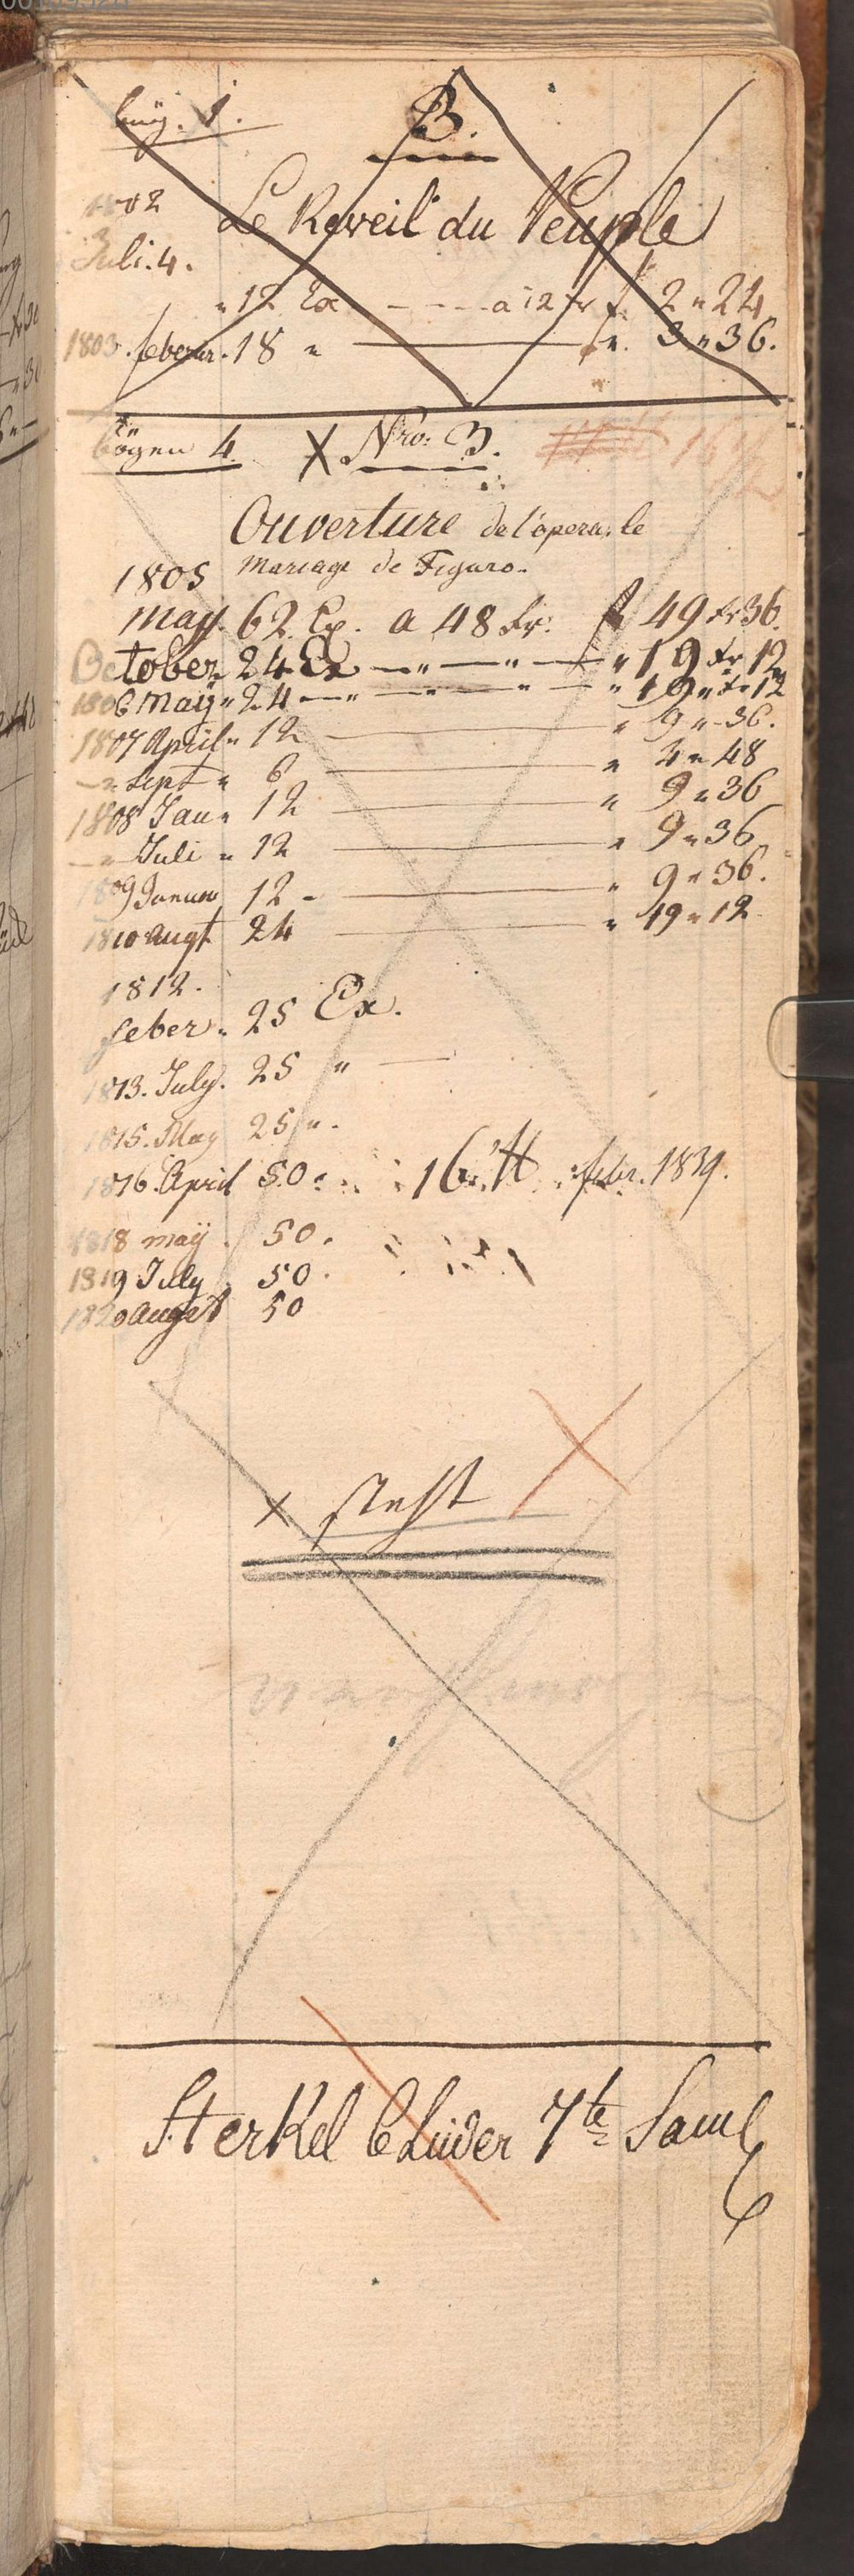 1.
3.
1802
Le Reveil du Peuple
Juli. 4.
" 12 Ex — a 12 xr f. 2 " 24
1803. feberur. 18 " — ". 3 " 36.
Bögen 4. X Nro: 3.
Ouverture de l'opera: le
Mariage de Figaro.
1805
may. 62 Ex. a 48 xr. f 49 xr 36.
October 24 Ex — " — " — " 19 xr 12
1806 Maÿ " 24 — " — " — " — " 19 " xr 12
1807 April " 12 — " 9 " 36.
— " Sept " 6 — " 4 " 48
1808 Jan " 12 — " 9 " 36
— " Juli " 12 — " 9 " 36
1809 Januar 12 — " 9 " 36.
1810 Augt 24 — " 19 " 12
1812.
feber " 25 Ex.
1813. July. 25 " —
1815. May 25 ".
1816. April 50 16 febr. 1839.
1818 maÿ. 50.
1819 July 50.
1820 Augst 50
X steht
Sterkel 6 Lieder 7te Saml